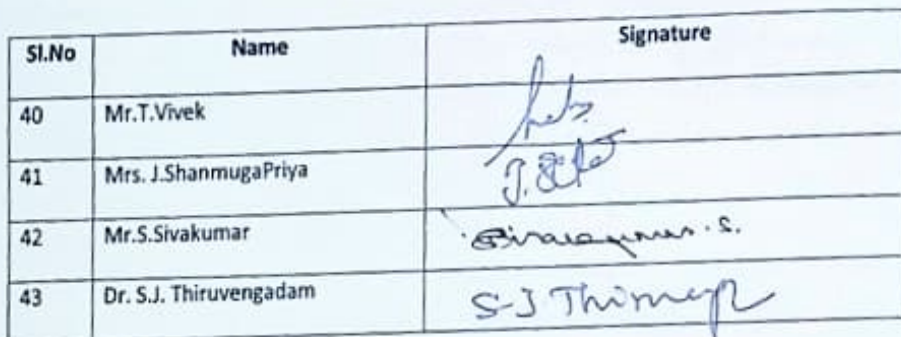 Sl.No Name Signature
40 Mr.T.Vivek
41 Mrs. J.ShanmugaPriya J.
42 Mr.S.Sivakumar Sivakumar.S.
43 Dr. S.J. Thiruvengadam S-J